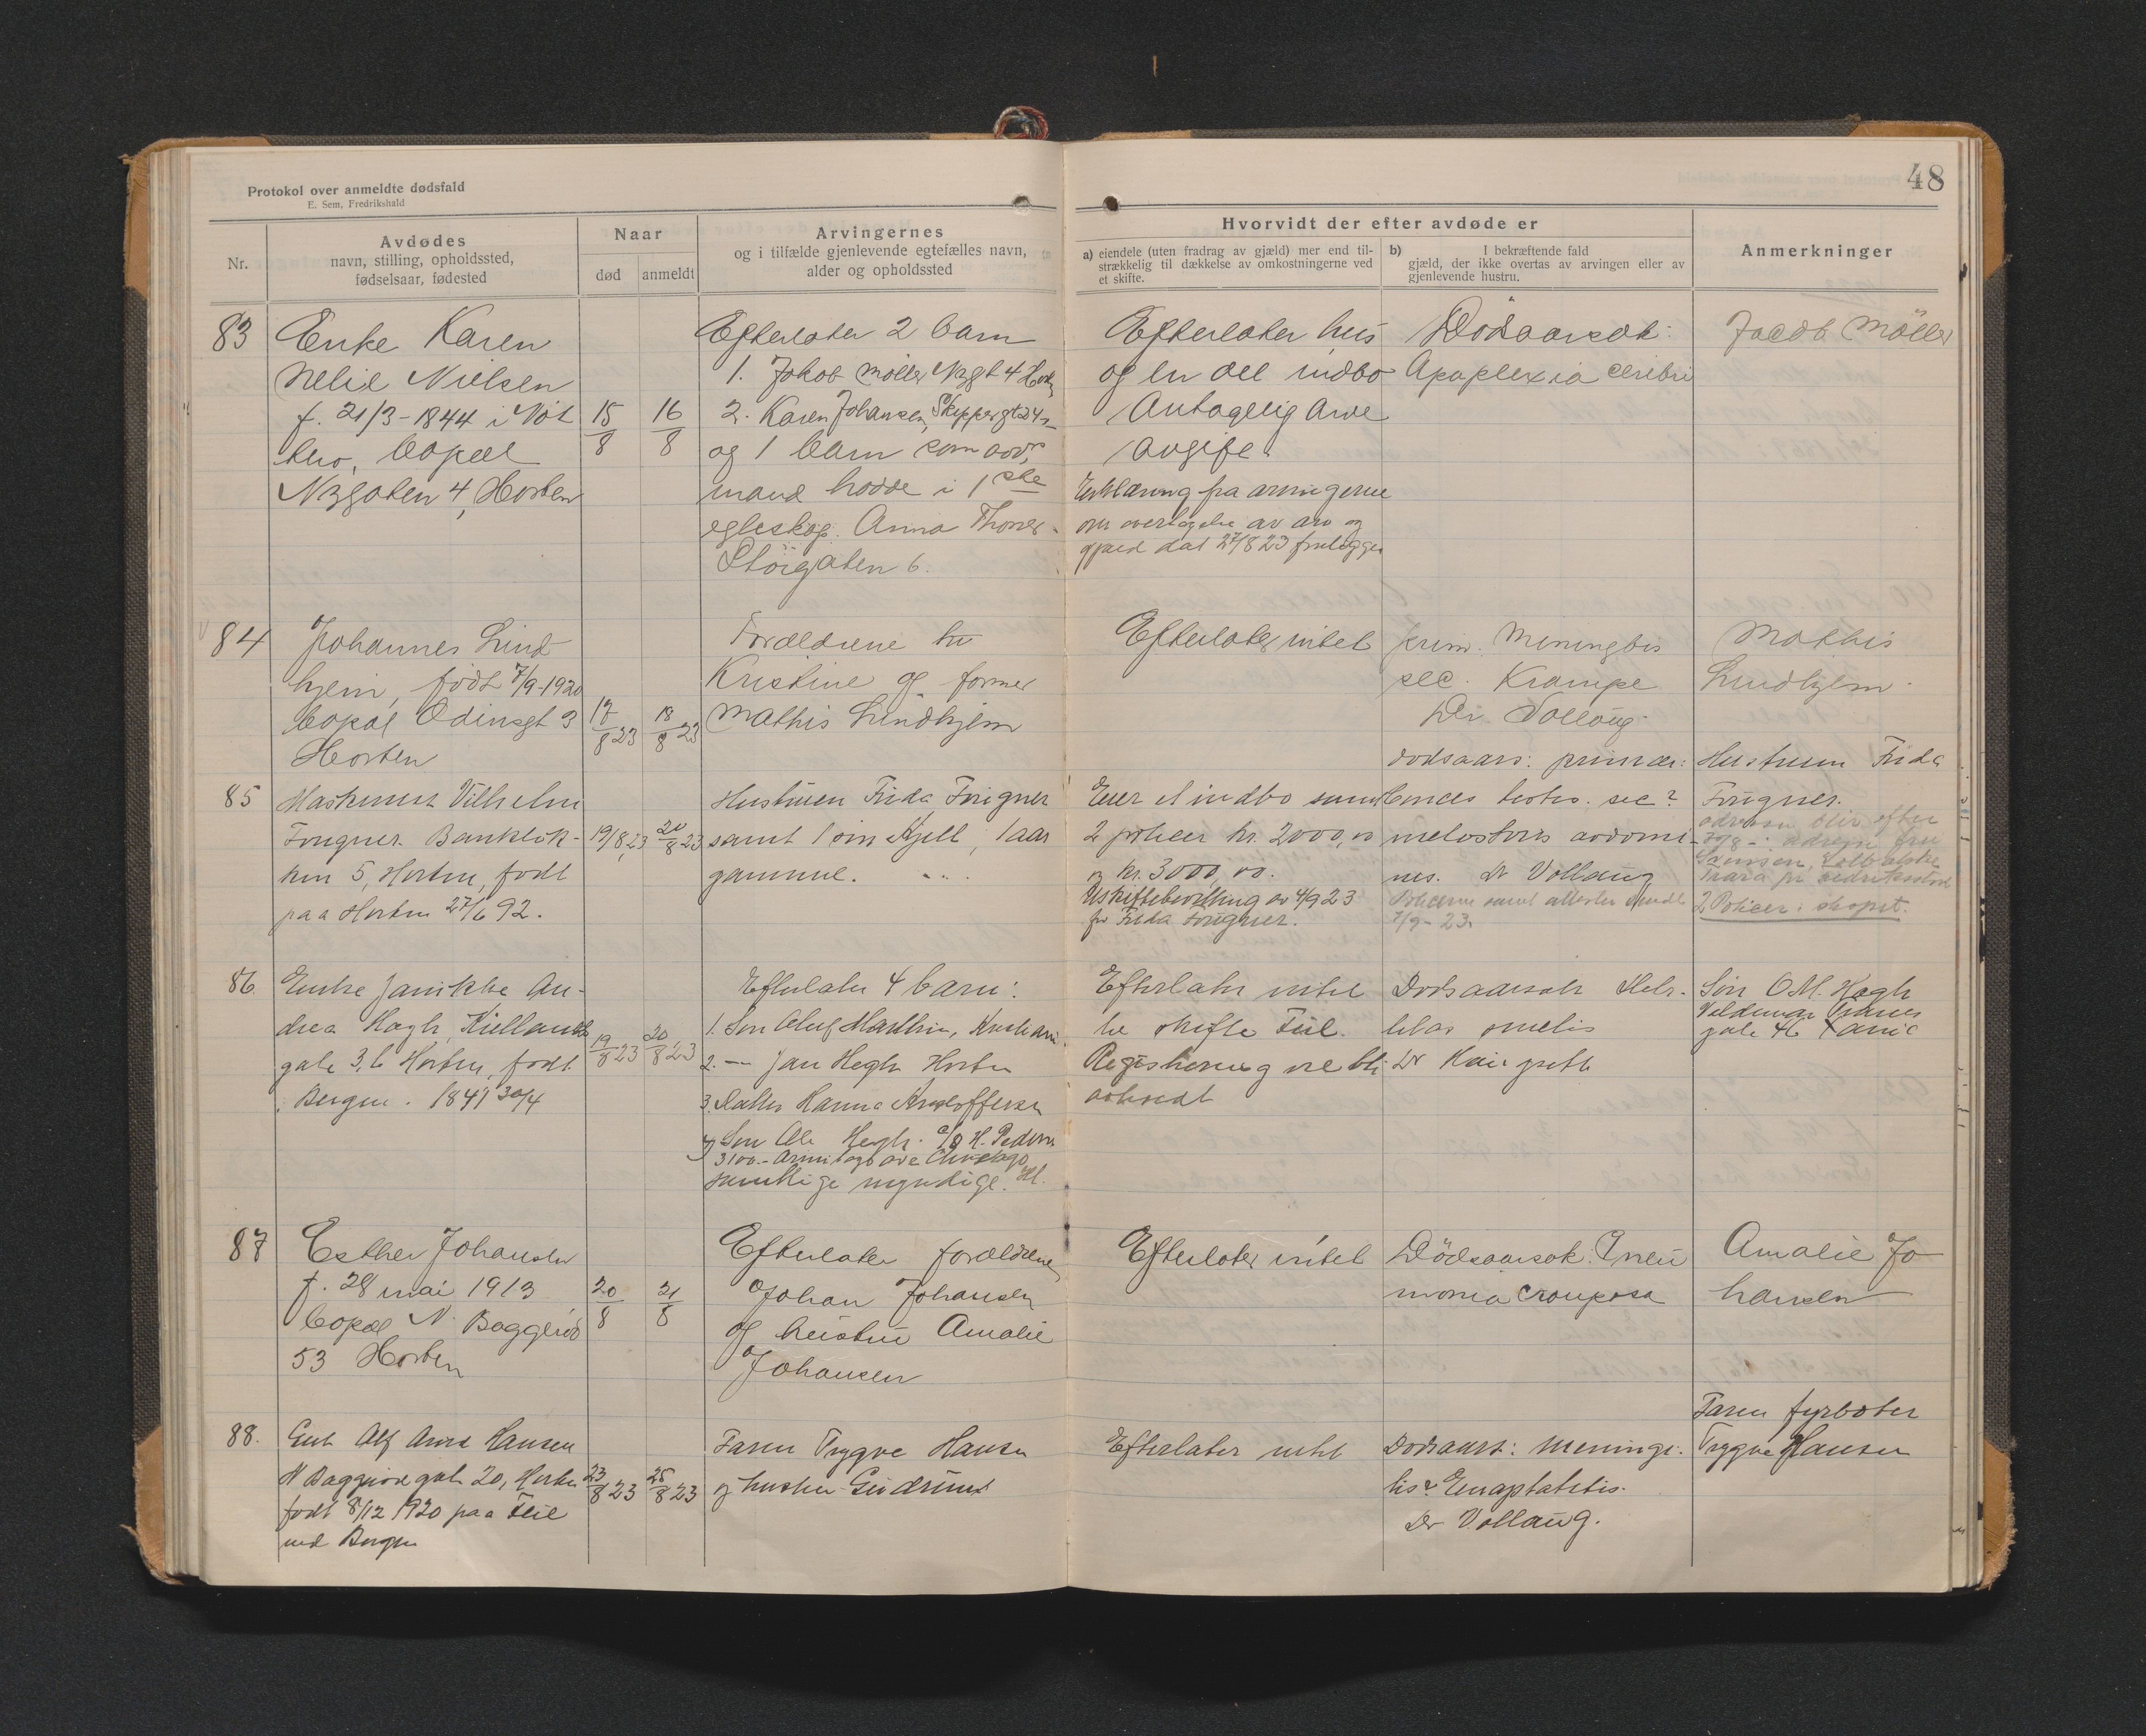 48
Protokol over anmeldte dødsfald
E. Sem, Fredrikshald
Nr.
Avdødes
navn, stilling, opholdssted,
fødselsaar, fødested
Naar
død
anmeldt
Arvingernes
og i tilfælde gjenlevende egtefælles navn,
alder og opholdssted
Hvorvidt der efter avdøde er
a) eiendele (uten fradrag av gjæld) mer end til-
strækkelig til dækkelse av omkostningerne ved
et skifte.
b) I bekræftende fald
gjæld, der ikke overtas av arvingen eller av
gjenlevende hustru.
Anmerkninger
83
Enke Karen
Nelie Nielsen
f. 21/3-1844 i
bopæl
4, Horten
15/8
16/8
Efterlater 2 barn
1. Jakob Møller 4
2. Karen Johansen, Skippergt 24
og 1 barn som avd.
mand hadde i 1ste
egteskap. Anna
Storgaten 6.
Efterlater hus
og en del indbo
Antagelig arve
avgift.
Erklæring fra arvingerne
om overtagelse av arv og
gjæld dat 27/8 23
Dødsaarsak:
Apoplexia cerebri
Jacob Möller
84
Johannes Lind
hjem, født 7/9-1920
bopæl Odinsgt 3
Horten
17/8 23
18/8 23
Forældrene
Kristine og former
Mathis Lindhjem
Efterlater intet
prim. Meningitis
sec. Krampe
Dr. Vollaug
Mathis
Lindhjem
85
Maskinist Vilhelm
Fougner Bankløk-
ken 5, Horten, født
paa Horten 27/6 92.
19/8 23
20/8 23
Hustruen Frida Fougner
samt 1 søn Kjell, 1 aar
gammel.
Eier et indbo samt
2 policer kr. 2000,00
og kr. 3000,00.
Uskiftebevilling av 4/9 23
for Frida Fougner.
dødsaars: primær:
sec?
nes. Dr Vollaug
Policerne samt attester sendt
7/9-23.
Hustruen Frida
Fougner.
2 Policer i skapet.
86.
Enke Janikke An-
drea Høgh, Kiellands
gate 3b Horten, født
i Bergen. 1841 30/4
19/8 23
20/8 23
Efterlater 4 barn:
1. Søn Oluf Marthin,
2. — Jan Høgh Horten
3. Datter Hanna Kristoffersen
4 Søn Ole Høgh. c/o H. Pedersen
3100.- Armitage ave Chicago
samtlige myndige. Ill.
Efterlater intet
Registrering vil bli
avholdt
Dødsaarsak
Søn O.M. Høgh
gate 46
87
Esther Johansen
f. 28 mai 1913
bopæl N. Baggerød
53 Horten
20/8
21/8
Efterlater forældrene
Johan Johansen
og hustru Amalie
Johansen
Efterlater intet
Dødsaarsak. Pneu
monia crouposa
Amalie Jo
hansen
88.
Gut Alf Arne Hansen
N Baggerødgate 20, Horten
født 8/12 1920 paa
ved Bergen
23/8 23
25/8 23
Faren Trygve Hansen
og hustru Gudrun
Efterlater intet
Dødsaars: Meningi-
tis?
Dr Vollaug.
Faren fyrbøter
Trygve Hansen